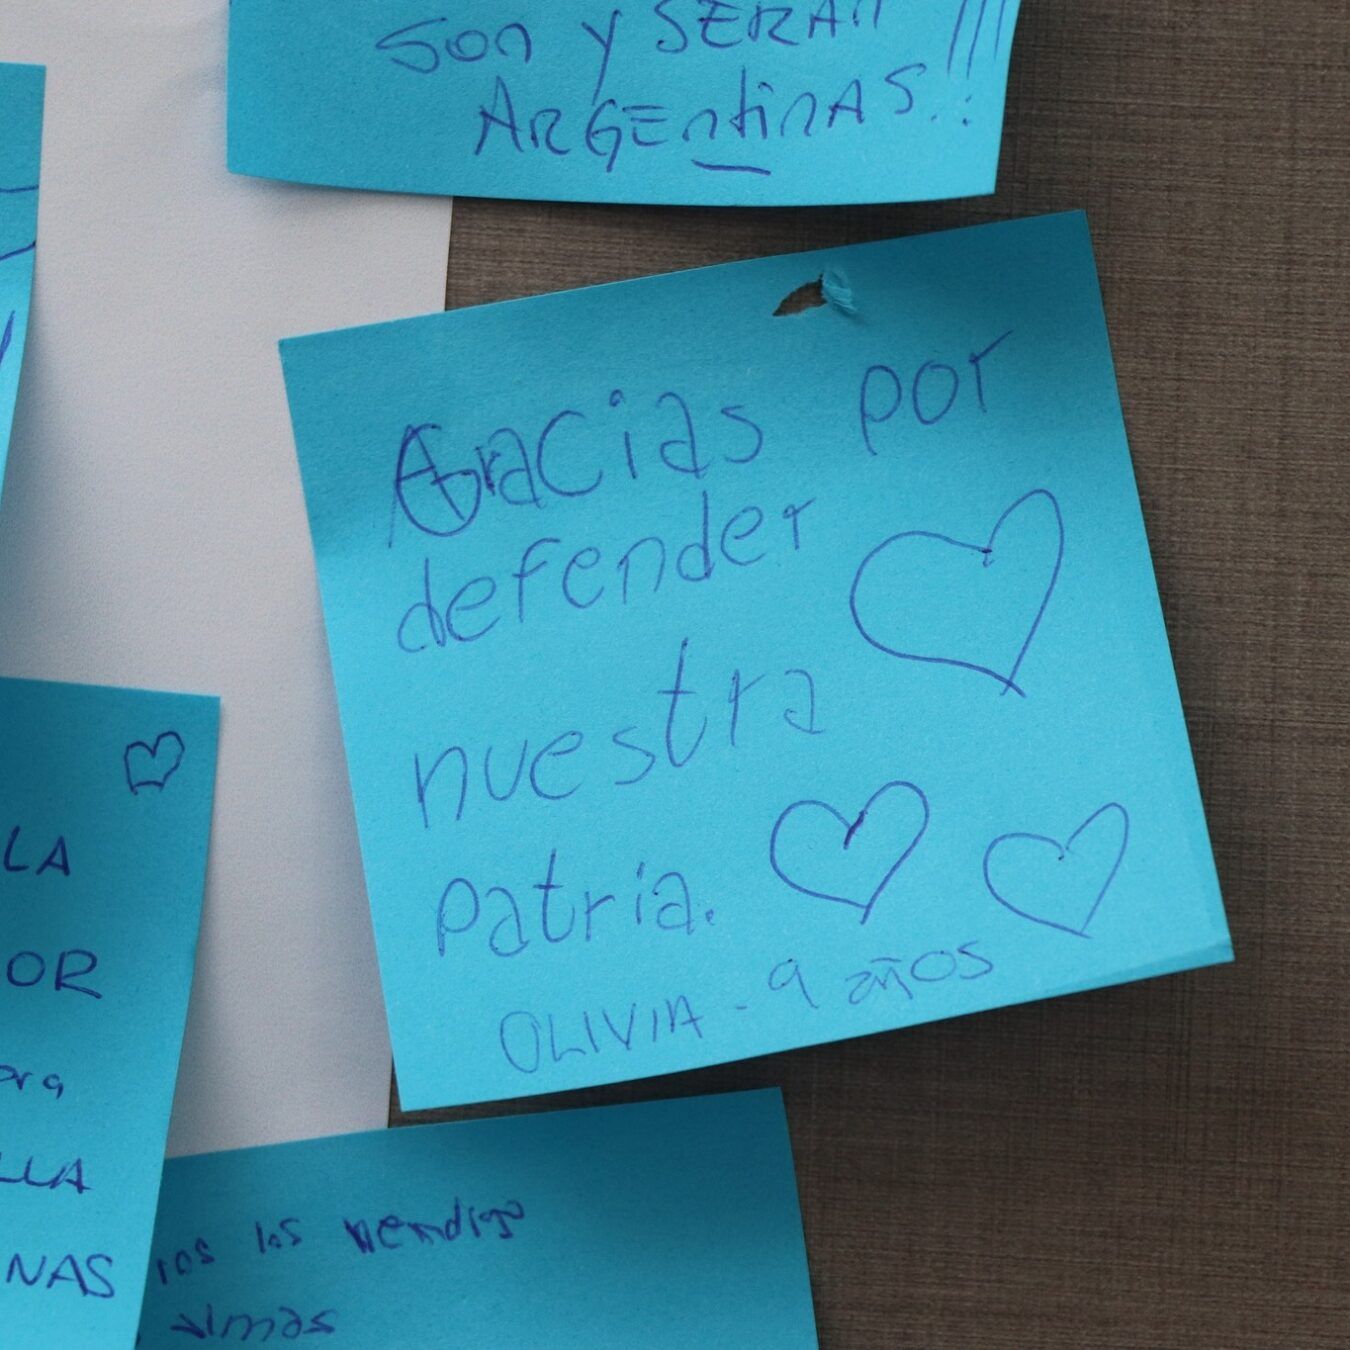 son y SERAN
ARGEntinAS..!!!
Gracias por
defender
nuestra
patria.
OLIVIA - 9 años
LA
OR
ora
LLA
NAS
los
almas